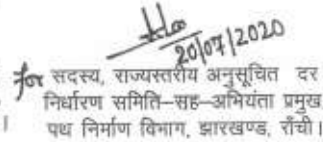 20/07/2020
for सदस्य, राज्यस्तरीय अनुसूचित दर
निर्धारण समिति-सह-अभियंता प्रमुख
। पथ निर्माण विभाग, झारखण्ड, राँची।